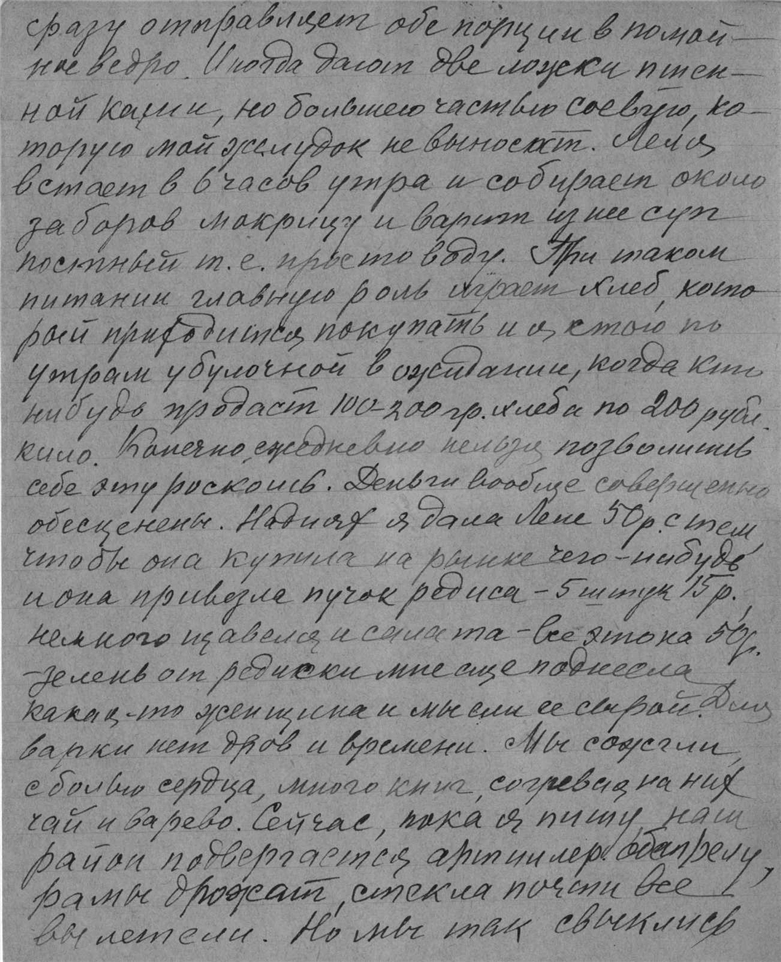 сразу отправляет обе порции в помой-
ное ведро. Иногда дают две ложки пшен-
ной каши, но большею частью соевую, ко-
торую мой желудок не выносит. Леля
встает в 6 часов утра и собирает около
заборов мокрицу и варит из нее суп
постный т.е. просто воду. При таком
питании главную роль играет хлеб, кото
рый приходится покупать и я стою по
утрам у булочной в ожидании, когда кто
нибудь продаст 100-200 гр. хлеба по 200 рубл.
кило. Конечно, ежедневно нельзя позволить
себе эту роскошь. Деньги вообще совершенно
обесценены. На днях я дала Леле 50 р. с тем,
чтобы она купила на рынке чего-нибудь
и она привезла пучок редиса - 5 штук 15 р.,
немного щавеля и салата - все это на 50 р.
- зелень от редиски мне еще поднесла
какая-то женщина и мы ели ее сырой. Для
варки нет дров и времени. Мы сожгли,
с болью сердца, много книг, согревая на них
чай и варево. Сейчас, пока я пишу, наш
район подвергается артиллер. обстрелу,
рамы дрожат, стекла почти все
вылетели. Но мы так свыклись